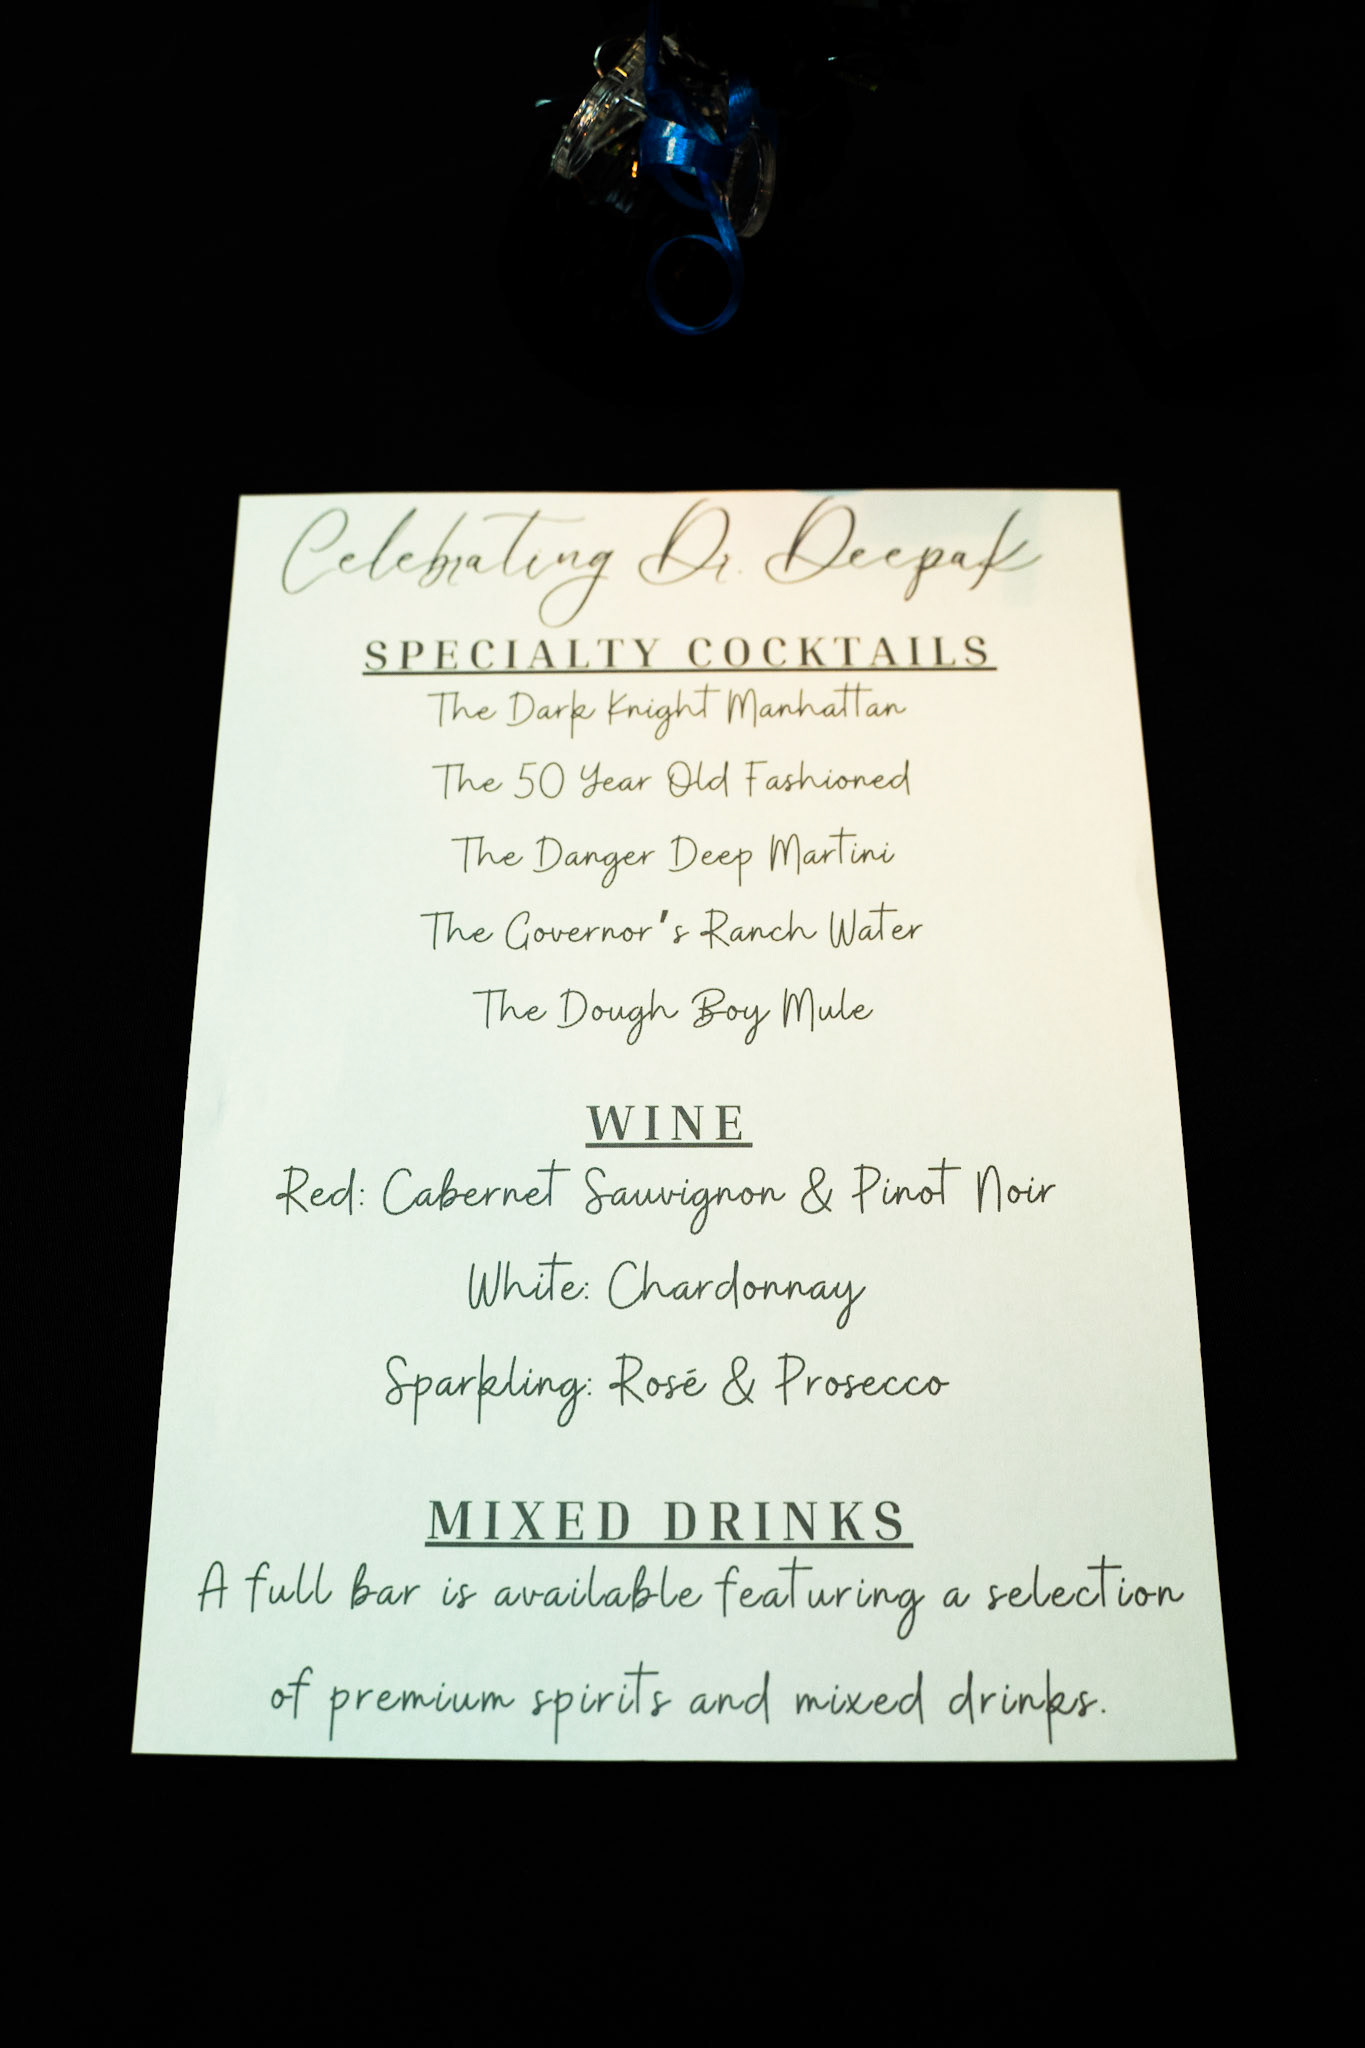 Celebrating Dr. Deepak
SPECIALTY COCKTAILS
The Dark Knight Manhattan
The 50 Year Old Fashioned
The Danger Deep Martini
The Governor's Ranch Water
The Dough Boy Mule
WINE
Red: Cabernet Sauvignon & Pinot Noir
White: Chardonnay
Sparkling: Rosé & Prosecco
MIXED DRINKS
A full bar is available featuring a selection
of premium spirits and mixed drinks.